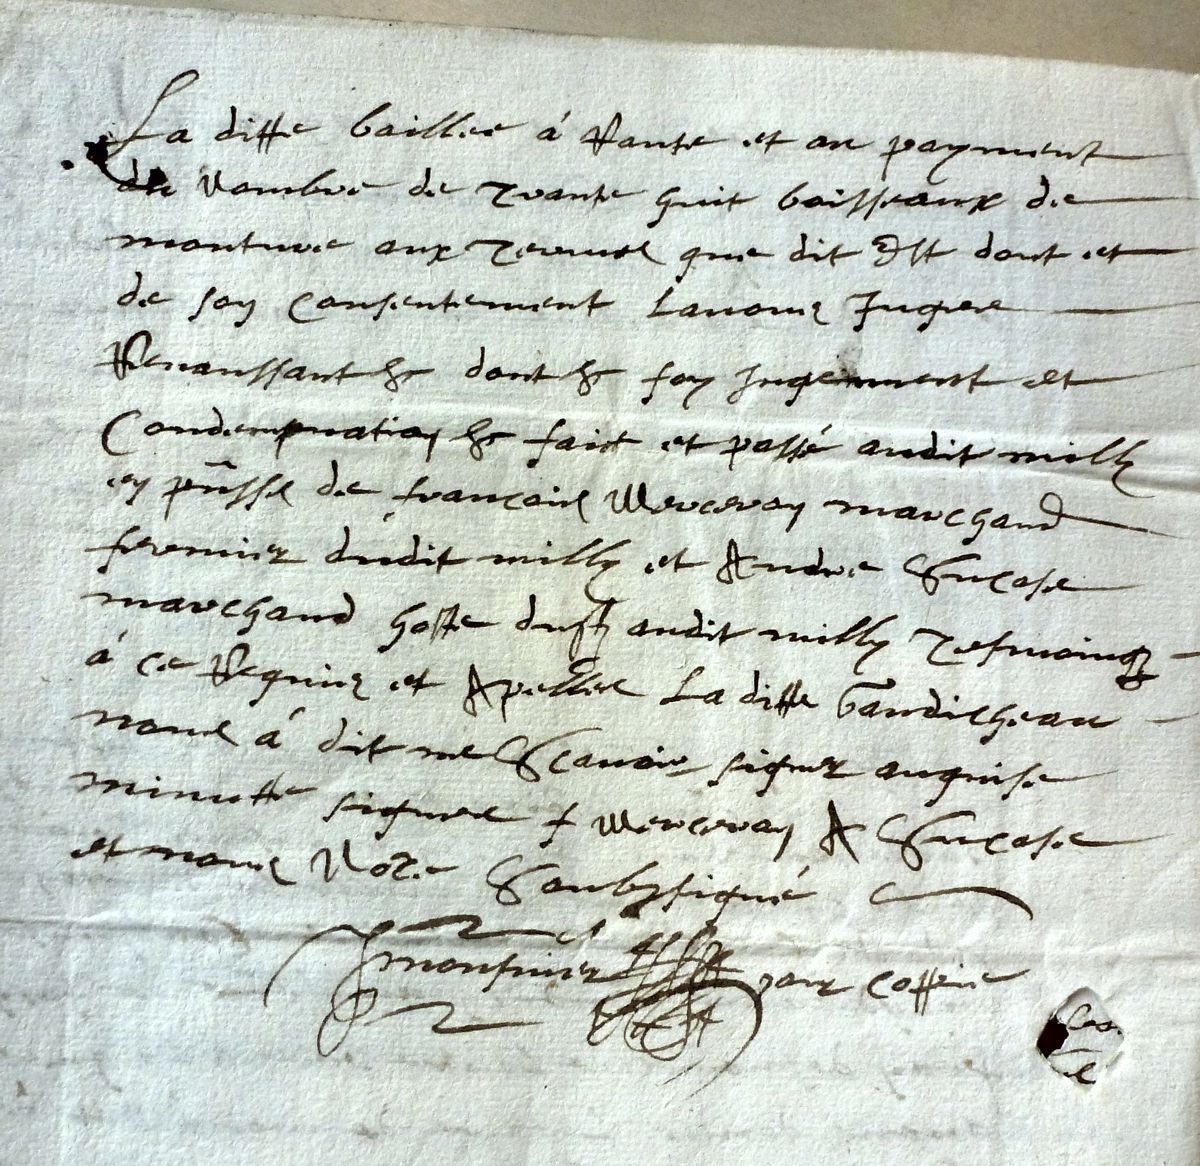 La ditte baillee á Rante et au payment
du nombre de trante huit boisseaux de
mouture aux termes que dit Est dont et
de son Consentement Lavons Jugee
Renonssant &c dont &c foy Jugemment et
Condempnation &c fait et passé audit milly
en pñsse de françois Merceron marchand
fermier dudit milly et Andre
marchand hoste audit milly tesmoingz
á ce Requis et Apellez La ditte Gaudicheau
nous á dit ne Scavoir signer enquise
minutte signee f Merceron A
et nous Notre Soubzsigné
pour coppie